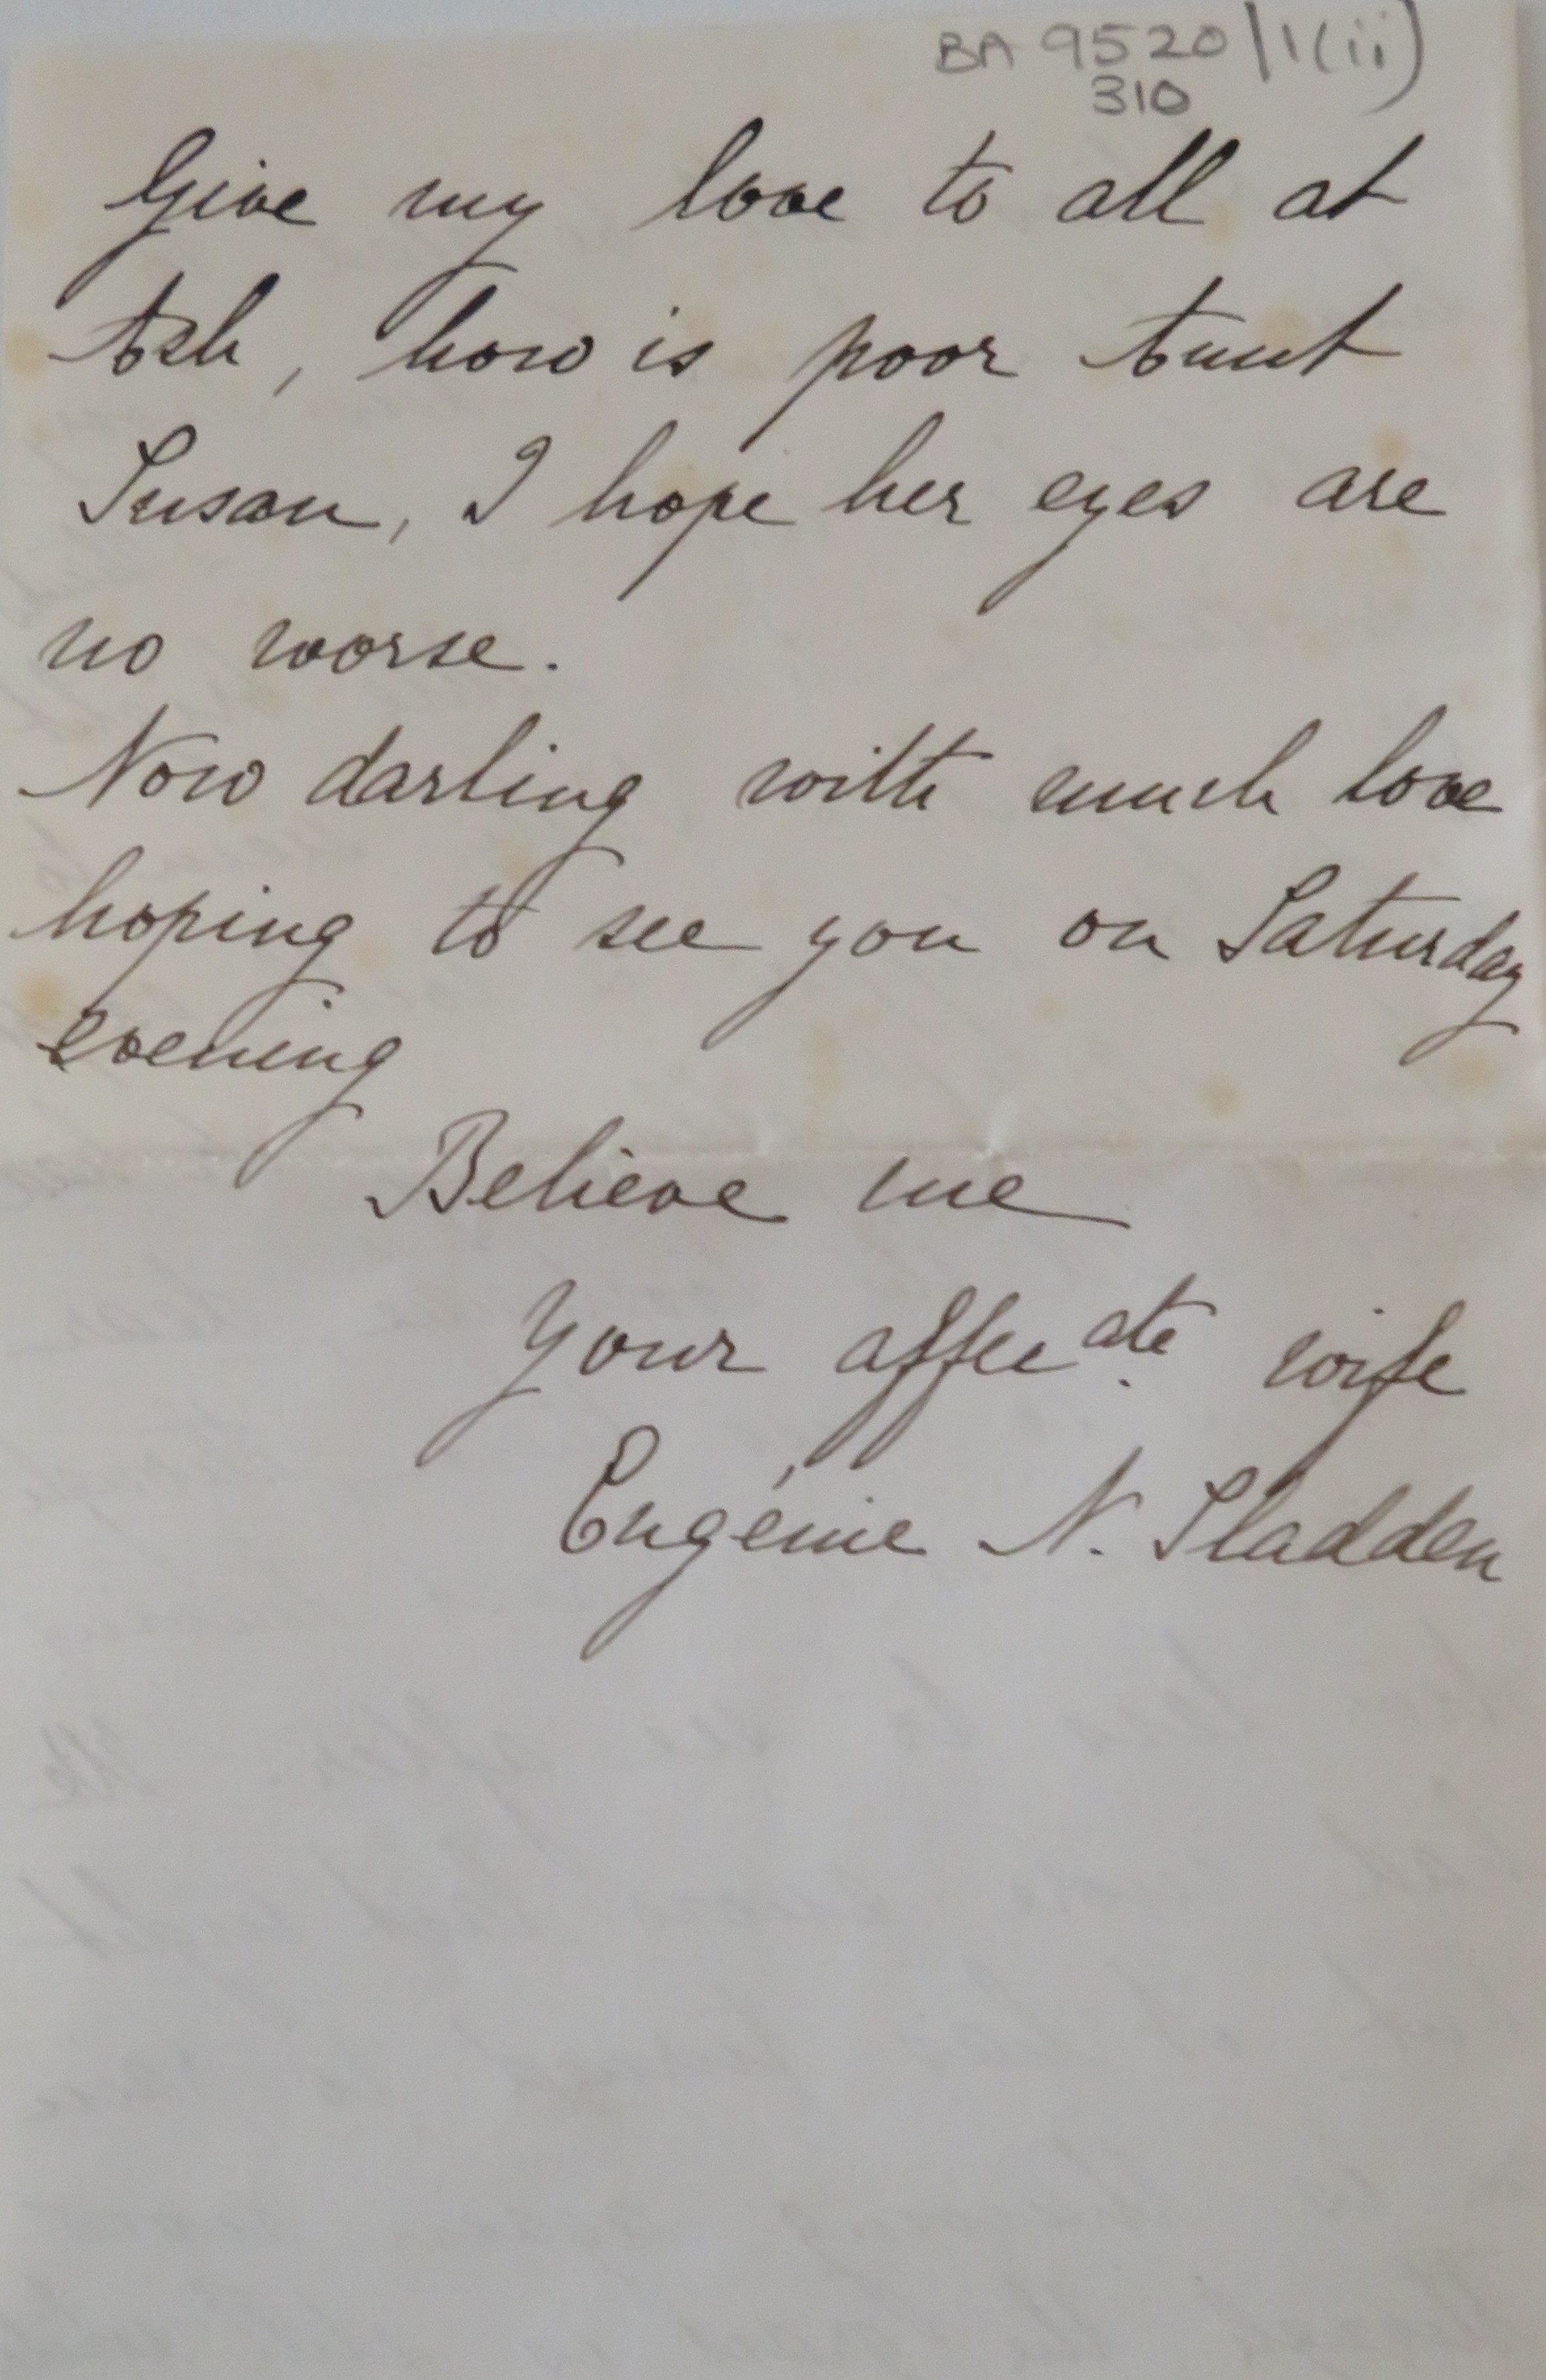 BA 9520/1(ii)
310
Give my love to all at
Ash, how is poor Aunt
Susan, I hope her eyes are
no worse.
Now darling with much love
hoping to see you on Saturday
evening
Believe me
Your affecate wife
Eugénie N. Sladden